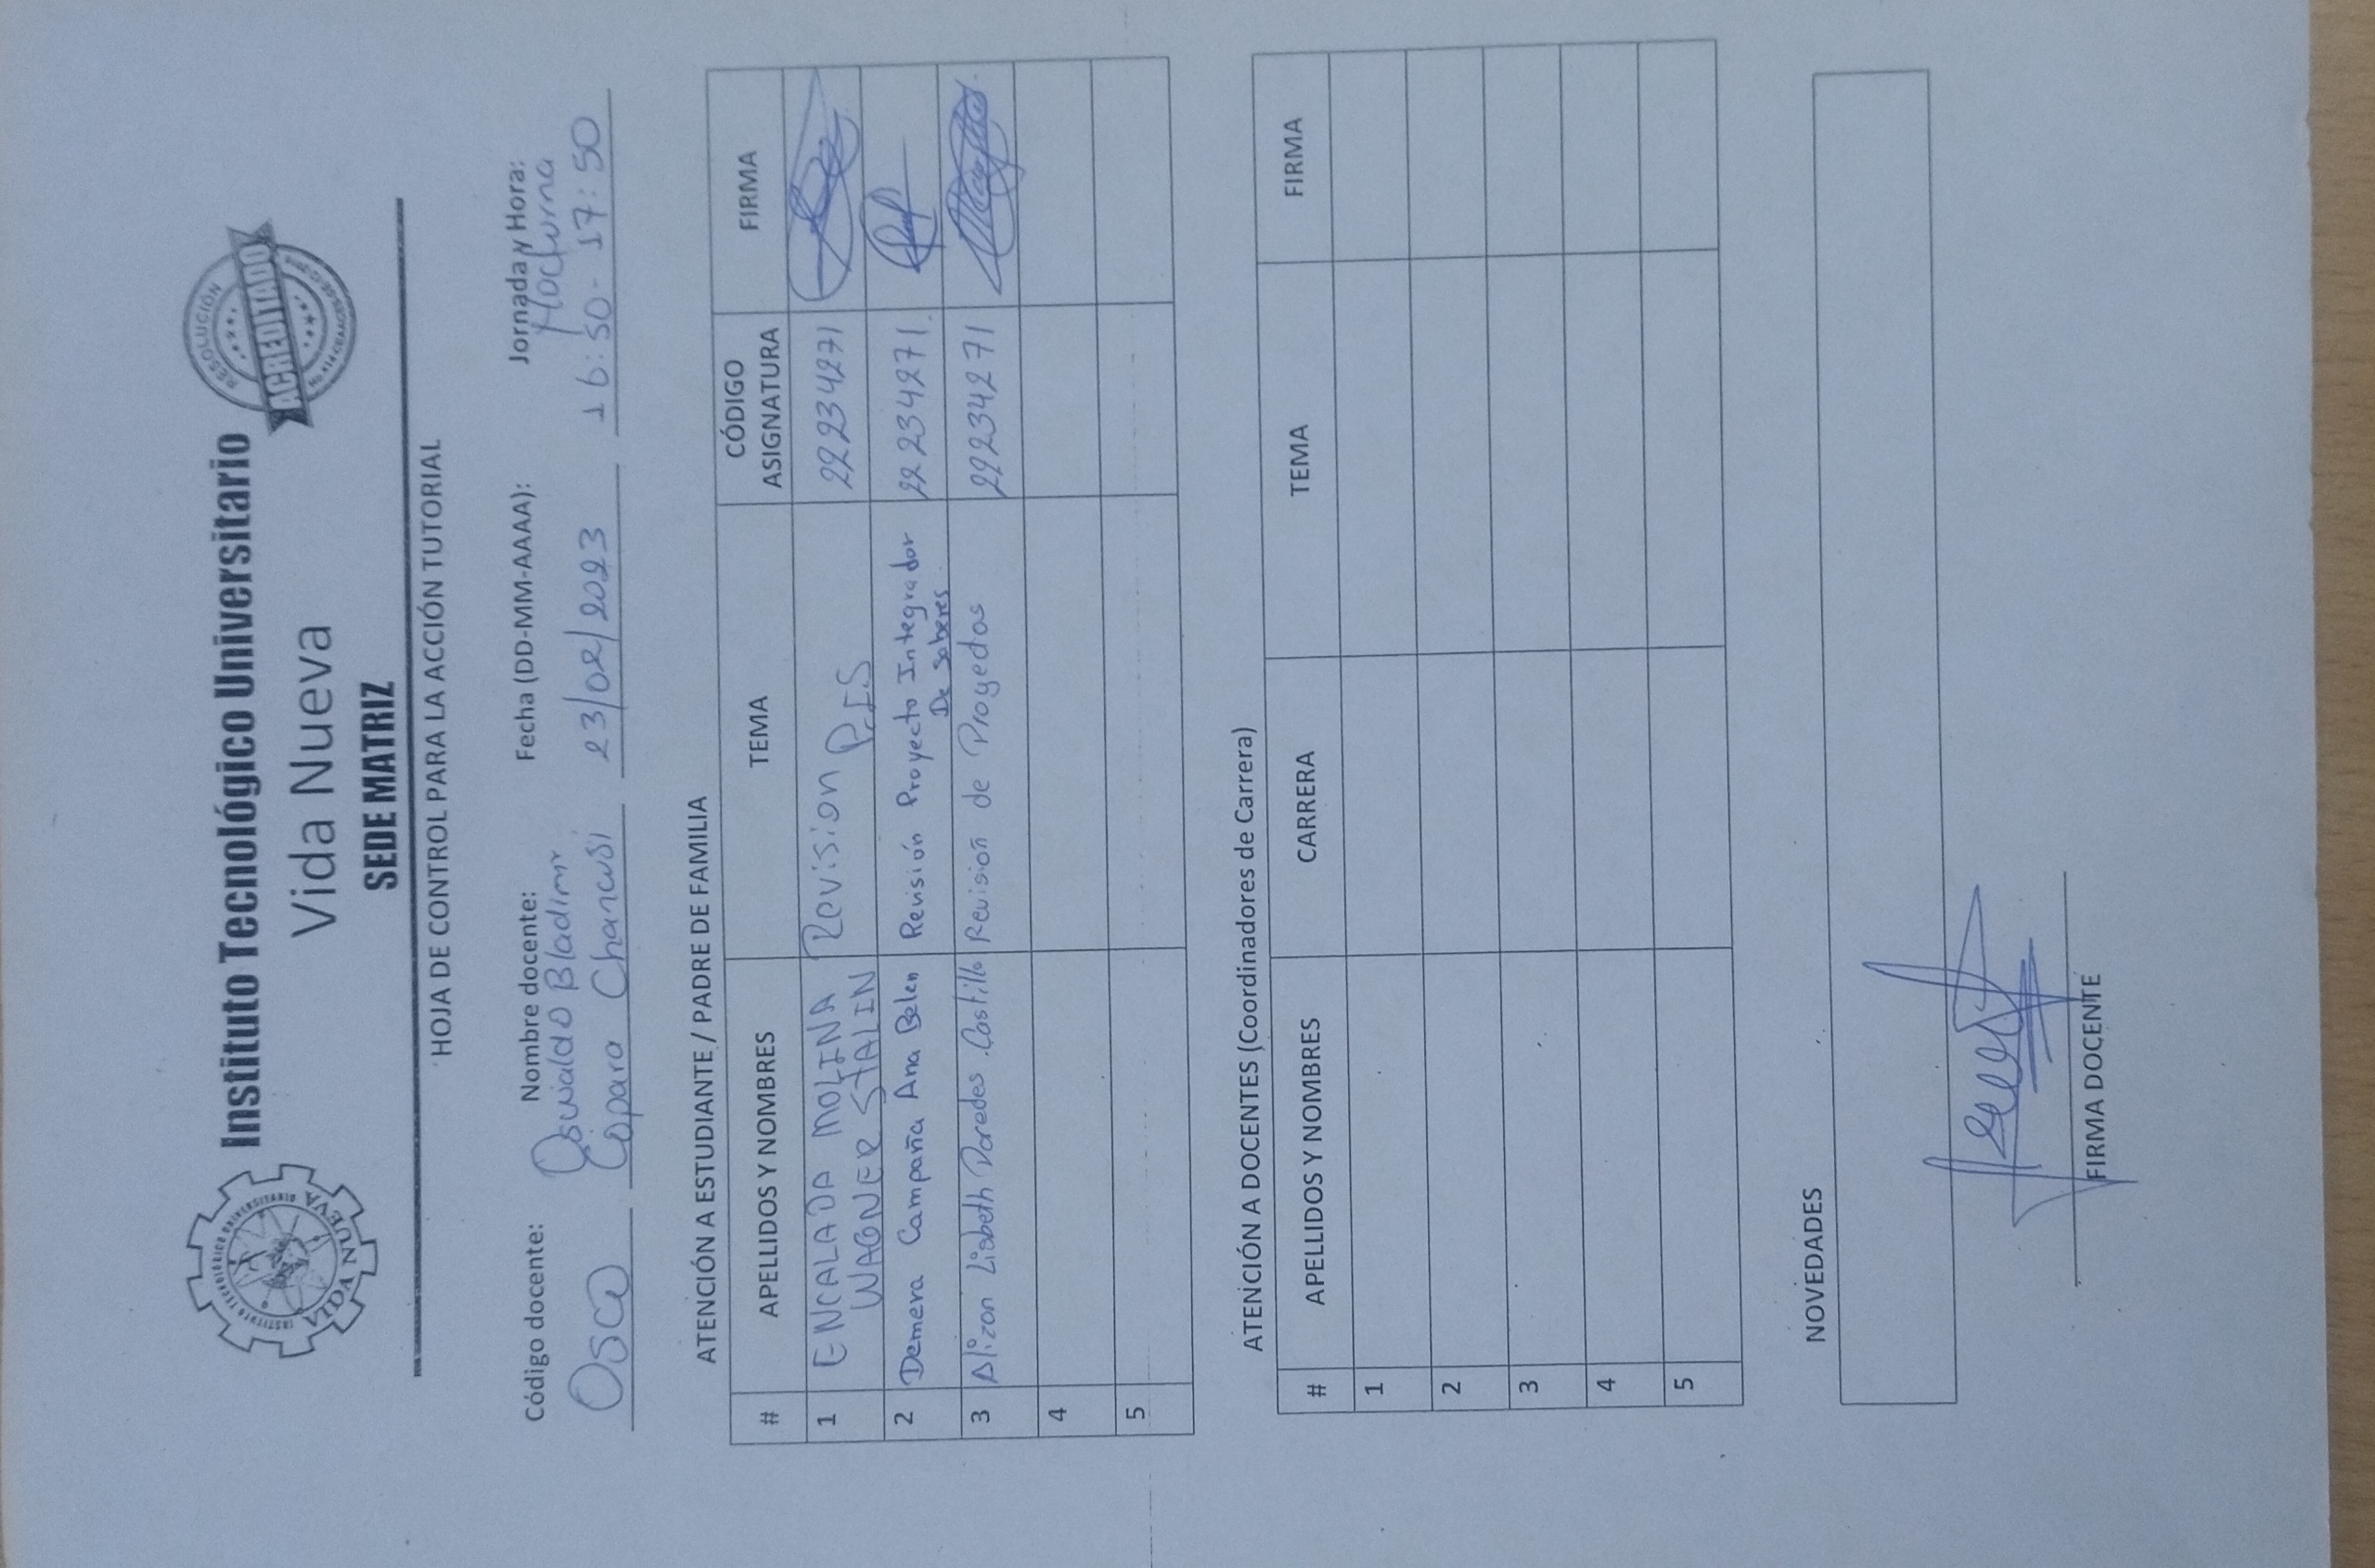 Instituto Tecnológico Universitario
Vida Nueva
SEDE MATRIZ
INSTITUTO TECNOLÓGICO UNIVERSITARIO
VIDA NUEVA
RESOLUCIÓN
ACREDITADO
HOJA DE CONTROL PARA LA ACCIÓN TUTORIAL
Código docente: Nombre docente: Fecha (DD-MM-AAAA): Jornada y Hora:
Osca Oswaldo Bladimir 23/02/2023 Nocturna
Copara Chancusi 16:50 - 17:50
ATENCIÓN A ESTUDIANTE / PADRE DE FAMILIA
# APELLIDOS Y NOMBRES TEMA CÓDIGO ASIGNATURA FIRMA
1 ENCALADA MOLINA WAGNER STALIN Revision P.I.S 22234271
2 Demera Campaña Ana Belen Revisión Proyecto Integrador De Saberes 22234271.
3 Alizon Lisbeth Paredes Castillo Revision de Proyectos 222342 71
4
5
ATENCIÓN A DOCENTES (Coordinadores de Carrera)
# APELLIDOS Y NOMBRES CARRERA TEMA FIRMA
1
2
3
4
5
NOVEDADES
FIRMA DOCENTE